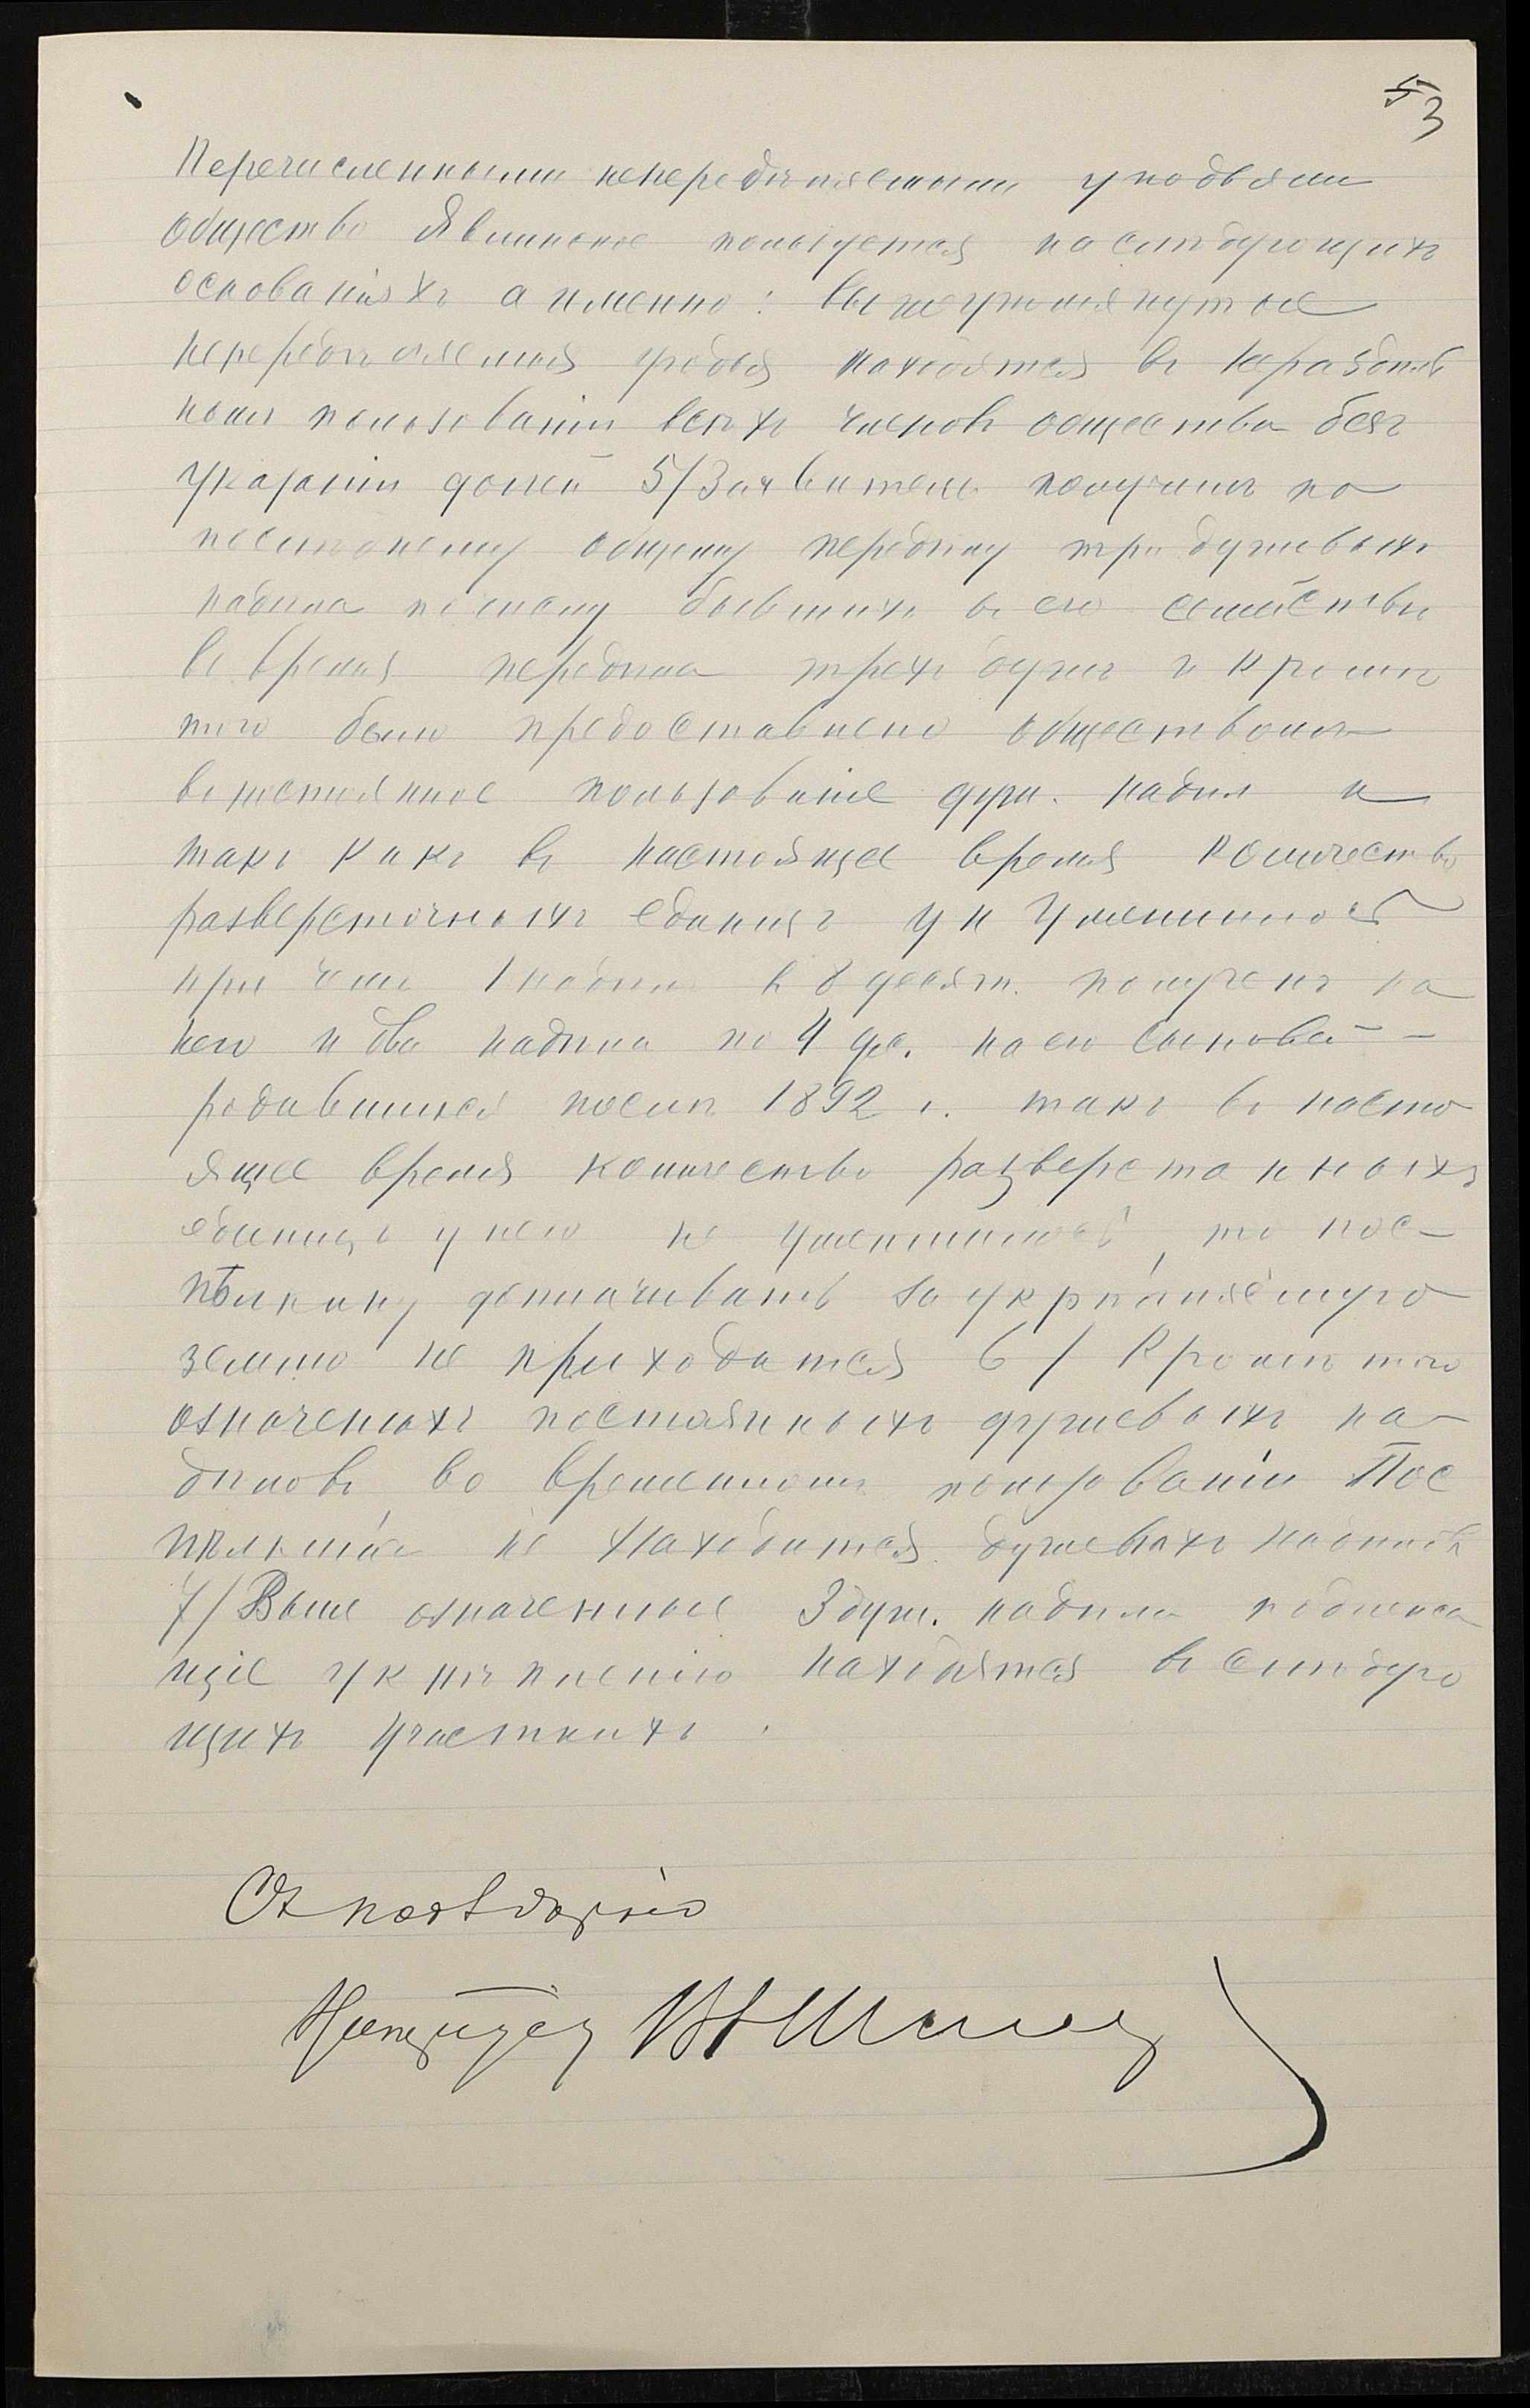 53
Перечисленными непередѣляемыми угодьями
общество Явлинское пользуется на слѣдующихъ
основаніяхъ а именно: вышеупомянутые
непередѣляемыя угодья находятся въ нераздѣль
номъ пользованіи всѣхъ членовъ общества безъ
указанія долей 5/ Заявитель получилъ по
послѣднему общему передѣлу три душевыхъ
надѣла по числу бывшихъ въ его семействѣ
во время передѣла трехъ душъ и кромѣ
того было предоставлено обществомъ
въ постоянное пользованіе душ. надѣл и
такъ какъ въ настоящее время количество
разверсточныхъ единицъ у н уменшилось
при чемъ 1 надѣлъ въ 8 десят. полученъ на
него и два надѣла по 4 де. на его сыновей
родавшихся послѣ 1892 г. такъ въ насто
ящее время количество разверстанныхъ
единицъ у него не уменшилось, то Пос-
пѣлкину доплачивать за укрѣпляемую
землю не приходится 6/ Кромѣ того
означеныхъ постоянныхъ душевыхъ на-
дѣловъ во временномъ пользованіи Пос
пѣлкина не находится душевыхъ надѣловъ
7/ Выше означенные 3 душ. надѣла подлежа
щіе укрѣпленію находятся въ слѣдую
щихъ участкахъ.